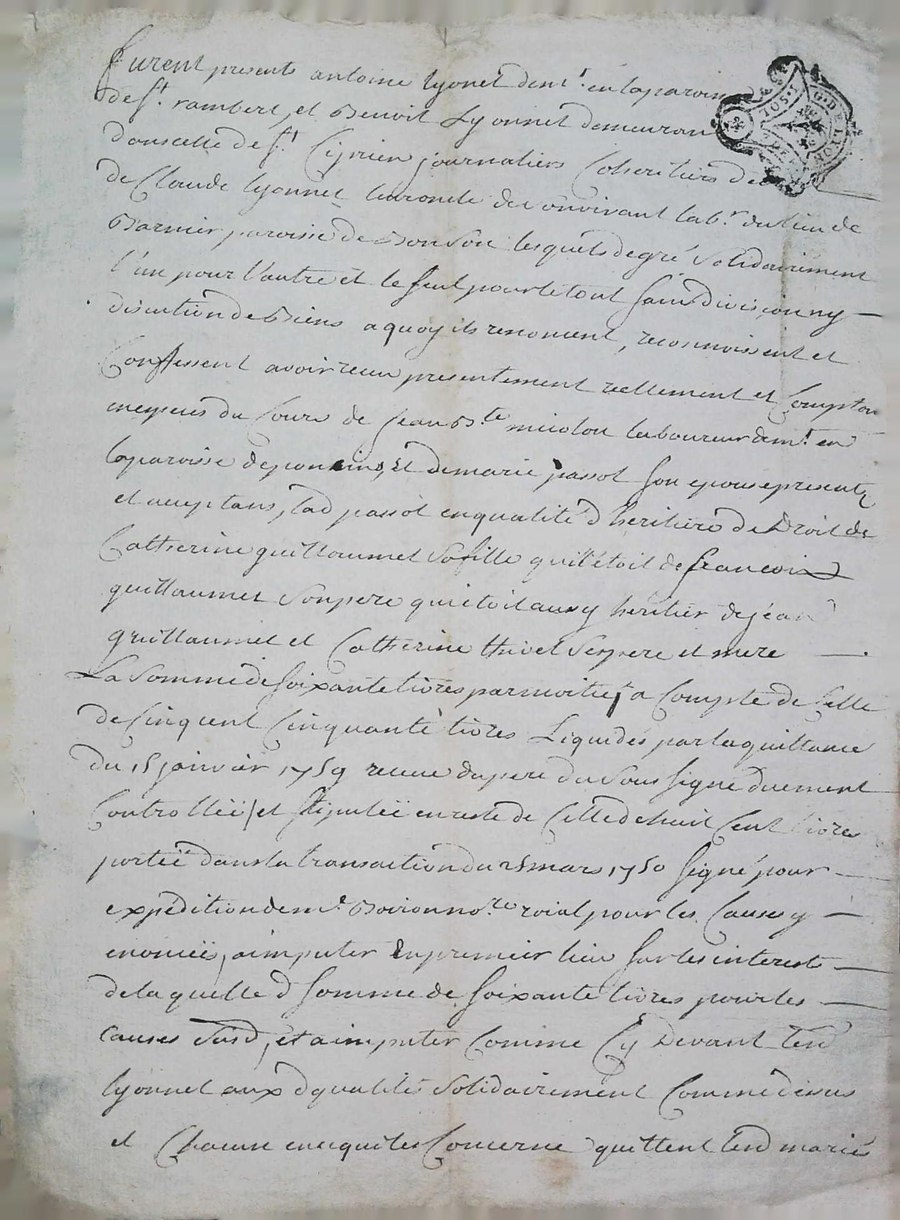 furent presents antoine lyonet demt. en la paroiss
de st. rambert, et Benoit Lyonnet demeuran
G. D. DE LYON
1 SOL
dans celle de st. Ciprien journaliers Coheritiers de
de Claude lyonnet leur oncle de son vivant labr. du lieu de
Barnier paroisse de Bonson lesquels de gré solidairement
l'un pour l'autre et le seul pour le tout sans division ny
discution de Biens a quoy ils renoncent, reconnoissent et
Confessent avoir recu presentement reellement et Comptan
en especes du Cours de Jean Bte. miolon laboureur demt. en
la paroisse de poncins, Et de marie passot son epouse presents
et acceptans, lad passot en qualité d'heritiere de Droit de
Catherine guillaumet sa fille qui l'étoit de francois
guillaumet son pere qui étoit aussy heritier de jean
guillaumet et Catherine thivel ses pere et mere
La somme de soixante livres par moitié, a Compte de Celle
de Cinq cent Cinquante livres Liquidés par la quittance
du 15 janvier 1759 recue du pere du soussigné duement
Controlleé, et stipuleé en reste de Celle de huit Cent livres
porteé dans la transaction du 25 mars 1750 signé pour
expédition de me. Boiron nore. roial pour les Causes y
enonceés, a imputer En premier lieu sur les interets
de laquelle d somme de soixante livres pour les
causes susd, et a imputer Comme Cy Devant lesd
lyonnet aux d qualités solidairement Comme dessus
et Chacun en ce qui les Concerne quittent lesd mariés